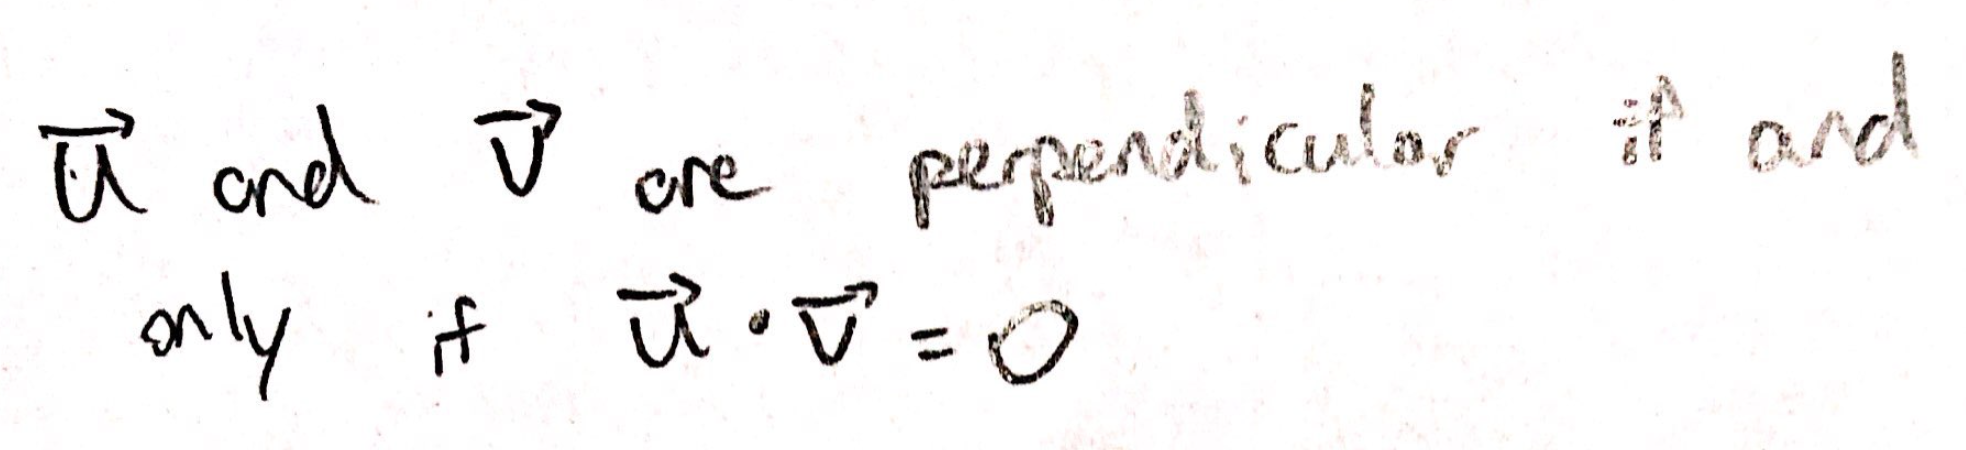 $\vec{u}$ and $\vec{v}$ are perpendicular if and
only if $\vec{u} \cdot \vec{v} = 0$